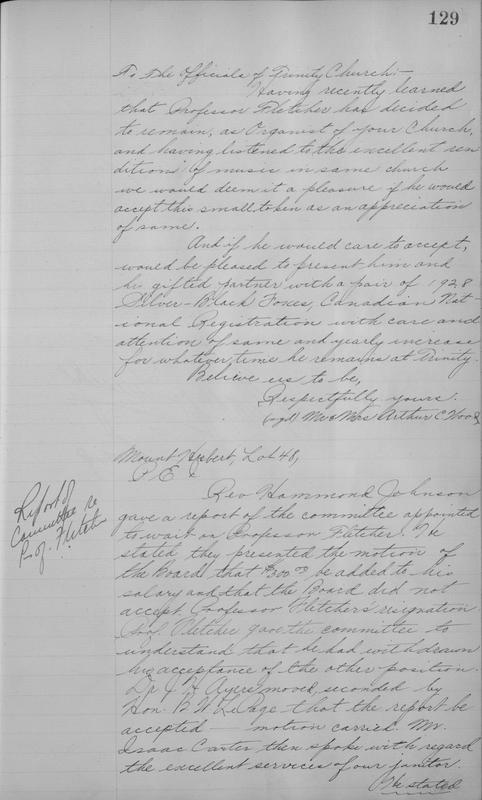 129
To The Officials of Trinity Church:-
Having recently learned
that Professor Fletcher has decided
to remain, as Organist of your Church,
and having listened to the excellent ren
ditions of music in same church
we would deem it a pleasure if he would
accept this small token as an appreciation
of same.
And if he would care to accept,
would be pleased to present him and
his gifted partner with a pair of 1928
Silver-Black Foxes, Canadian Nat-
ional Registration with care and
attention of same and yearly increase
for whatever time he remains at Trinity.
Believe us to be,
Respectfully yours.
(sgd) Mr & Mrs Arthur C. Wood
Mount Herbert, Lot 48,
P. E. I.
Report of
Committee re
Prof. Fletcher
Rev Hammond Johnson
gave a report of the committee appointed
to wait on Professor Fletcher. He
stated they presented the motion of
the Board that $300.00 be added to his
salary and that the Board did not
accept Professor Fletcher's resignation
Prof. Fletcher gave the committee to
understand that he had withdrawn
his acceptance of the other position.
Dr J. F. Ayers moved, seconded by
Hon. B. W. LePage that the report be
accepted — motion carried. Mr.
Isaac Carter then spoke with regard
the excellent services of our janitor.
He stated